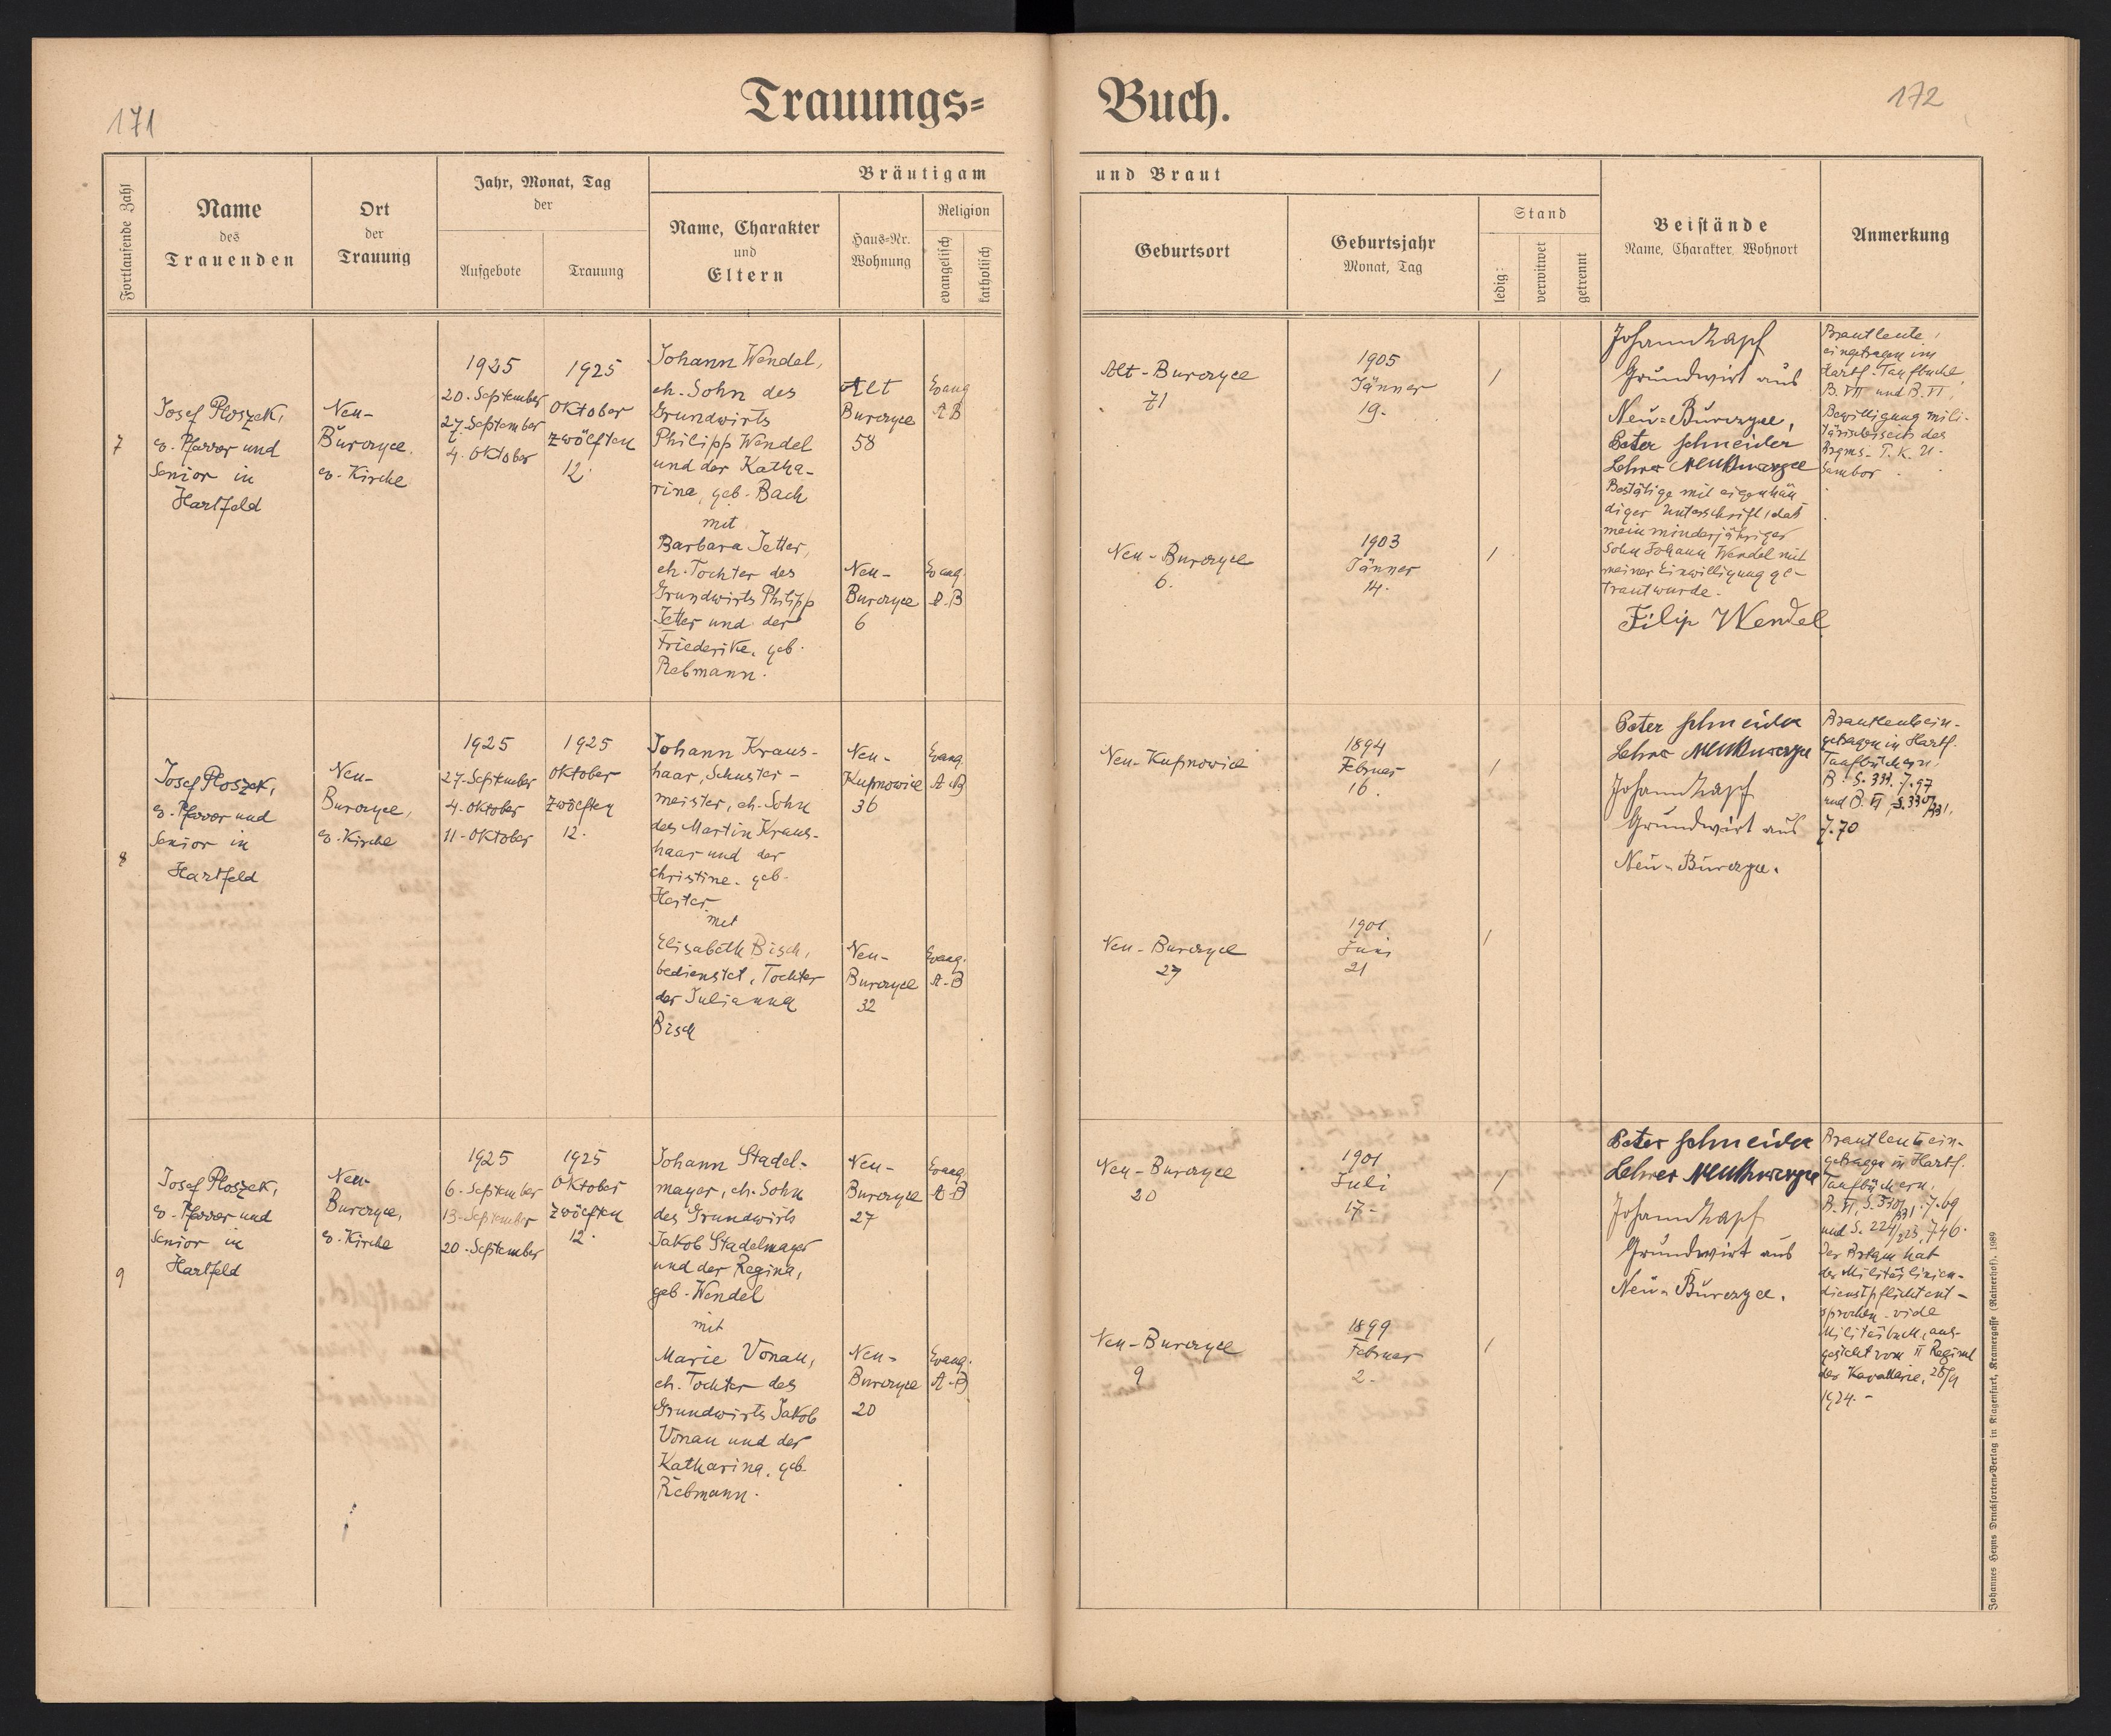 171
Trauungs=
Buch.
172
Fortlaufende Zahl
Name
des
Trauenden
Ort
der
Trauung
Jahr, Monat, Tag
der
Aufgebote
Trauung
Bräutigam
Name, Charakter
und
Eltern
Haus=Nr.
Wohnung
Religion
evangelisch
katholisch
und Braut
Geburtsort
Geburtsjahr
Monat, Tag
Stand
ledig:
verwitwet
getrennt
Beistände
Name, Charakter, Wohnort
Anmerkung
7
Josef Ploszek,
ev. Pfarrer und
Senior in
Hartfeld
Neu-
Burczyce,
ev. Kirche
1925
20. September
27. September
4. Oktober
1925
Oktober
zwölften
12.
Johann Wendel,
eh. Sohn des
Grundwirts
Philipp Wendel
und der Katha-
rina, geb. Bach
mit
Barbara Jetter,
eh. Tochter des
Grundwirts Philipp
Jetter und der
Friederike, geb.
Rebmann.
Alt
Burczyce
58
Evang
A B
Neu-
Burczyce
6
Evang.
A. B
Alt-Burczyce
71
1905
Jänner
19.
/
Neu-Burczyce
6.
1903
Jänner
14.
/
Johann Zapf
Grundwirt aus
Neu=Burczyce,
Peter Schneider
Lehrer Neuburczyce
Bestätige mit eigenhän
diger Unterschrift, daß
mein minderjähriger
Sohn Johann Wendel mit
meiner Einwilligung ge-
traut wurde.
Filip Wendel
Brautleute
eingetragen im
Hartf. Taufbuche,
B. VII und B. VI,
Bewilligung mili-
tärischerseits des
P. K. U.
Sambor
8
Josef Ploszek,
ev. Pfarrer und
Senior in
Hartfeld
Neu-
Burczyce,
ev. Kirche
1925
27. September
4. Oktober
11. Oktober
1925
Oktober
zwölften
12.
Johann Kraus-
haar, Schuster-
meister, eh. Sohn
des Martin Kraus-
haar und der
Christine, geb.
Herter
mit
Elisabeth Bisch,
bedienstet, Tochter
der Julianna
Bisch
Neu-
Kupnowice
36
Evang.
A. B
Neu-
Burczyce
32
Evang.
A. B
Neu-Kupnowice
1894
Februar
16.
/
Neu-Burczyce
27
1901
Juni
21
/
Peter Schneider
Lehrer Neuburczyce
Johann Zapf
Grundwirt aus
Neu-Burczyce.
Brautleute ein-
getragen in Hartf.
Taufbüchern,
und B. VI, S. 330/331,
7.70
9
Josef Ploszek,
ev. Pfarrer und
Senior in
Hartfeld
Neu-
Burczyce,
ev. Kirche
1925
6. September
13. September
20. September
1925
Oktober
zwölften
12.
Johann Stadel-
mayer, eh. Sohn
des Grundwirts
Jakob Stadelmayer
und der Regina,
geb. Wendel
mit
Marie Vonau,
eh. Tochter des
Grundwirts Jakob
Vonau und der
Katharina, geb.
Rebmann.
Neu-
Burczyce
27
Evang.
A. B
Neu-
Burczyce
20
Evang.
A. B
Neu-Burczyce
20
1901
Juli
17.
/
Neu-Burczyce
9
1899
Februar
2.
/
Peter Schneider
Lehrer Neuburczyce
Johann Zapf
Grundwirt aus
Neu-Burczyce.
Brautleute ein-
getragen in Hartf.
Taufbüchern,
B. VI, S. 330/331, 7.69
und S. 224/225, 746.
Der Brtgm hat
der Militärlinien-
dienstpflicht ent-
sprochen. vide
Militärbuch, aus-
gestellt vom II Regiment
der Kavallerie,
1924.-
Johannes Heyns Drucksorten-Verlag in Klagenfurt, Kramergasse (Rainerhof). 1989